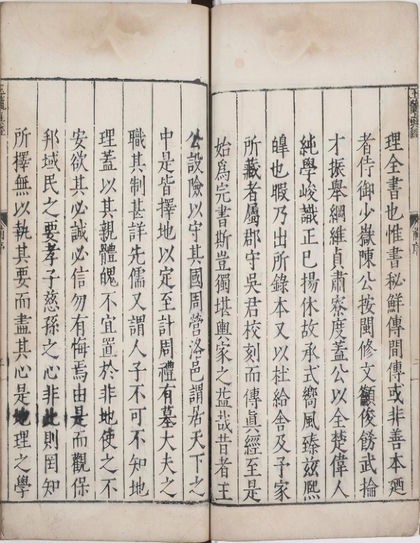 理全書也惟書秘鮮傳間傳或非善本廼
者侍御少嶽陳公按閩修文顧俊飭武掄
才振舉綱維貞肅寮度蓋公以全楚偉人
純學峻識正已揚休故承式嚮風臻茲熙
皥也暇乃出所錄本又以杜給舍及予家
所藏者屬郡守吳君校刻而傳眞經至是
始爲完書斯豈獨堪輿家之益哉昔者王
公設險以守其國周營洛邑謂居天下之
中是皆擇地以定至計周禮有墓大夫之
職其制甚詳先儒又謂人子不可不知地
理蓋以其親體魄不宜置於非地使之不
安欲其必誠必信勿有悔焉由是而觀保
邦域民之要孝子慈孫之心非此則罔知
所擇無以執其要而盡其心是地理之學